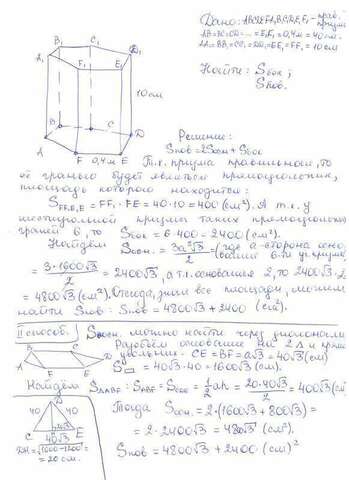 Дано: ABCDEFA₁B₁C₁D₁E₁F₁ - прав. призма
AB=BC=CD=...=E₁F₁=0,4м=40см.
AA₁=BB₁=CC₁=DD₁=EE₁=FF₁=10см
Найти: Sбок;
Sпов.
B₁ C₁
A₁ D₁
F₁ E₁
10см
B C D
A F 0,4м E
Решение:
Sпов = 2Sосн + Sбок
Т.к. призма правильная, то
её гранью будет являться прямоугольник,
площадь которого находится:
SFF₁E₁E = FF₁ · FE = 40·10 = 400 (см²). А т.к. у
шестиугольной призмы таких прямоугольных
граней 6, то Sбок = 6·400 = 2400 (см²).
Найдём Sосн. = 3a²√3/2 - (где a - сторона осно-
вания 6-ти угольника)
= 3·1600√3/2 = 2400√3, а т.к. основания 2, то 2400√3·2
= 4800√3 (см²). Отсюда, зная все площади, можем
найти Sпов: Sпов = 4800√3 + 2400 (см²).
II способ. Sосн. можно найти через диагонали
Разобьём основание на 2 Δ и прямо-
угольник. CE = BF = a√3 = 40√3 (см)
S▭ = 40√3·40 = 1600√3 (см).
Найдём SΔABF: SABF = SCDE = 1/2 ah = 20·40√3/2 = 400√3 (см
D
40 40
C 40√3 E
DH = √1600-1200 =
= 20 см.
Тогда Sосн. = 2·(1600√3 + 800√3) =
= 2·2400√3 = 4800√3 (см²).
Sпов = 4800√3 + 2400 (см)²